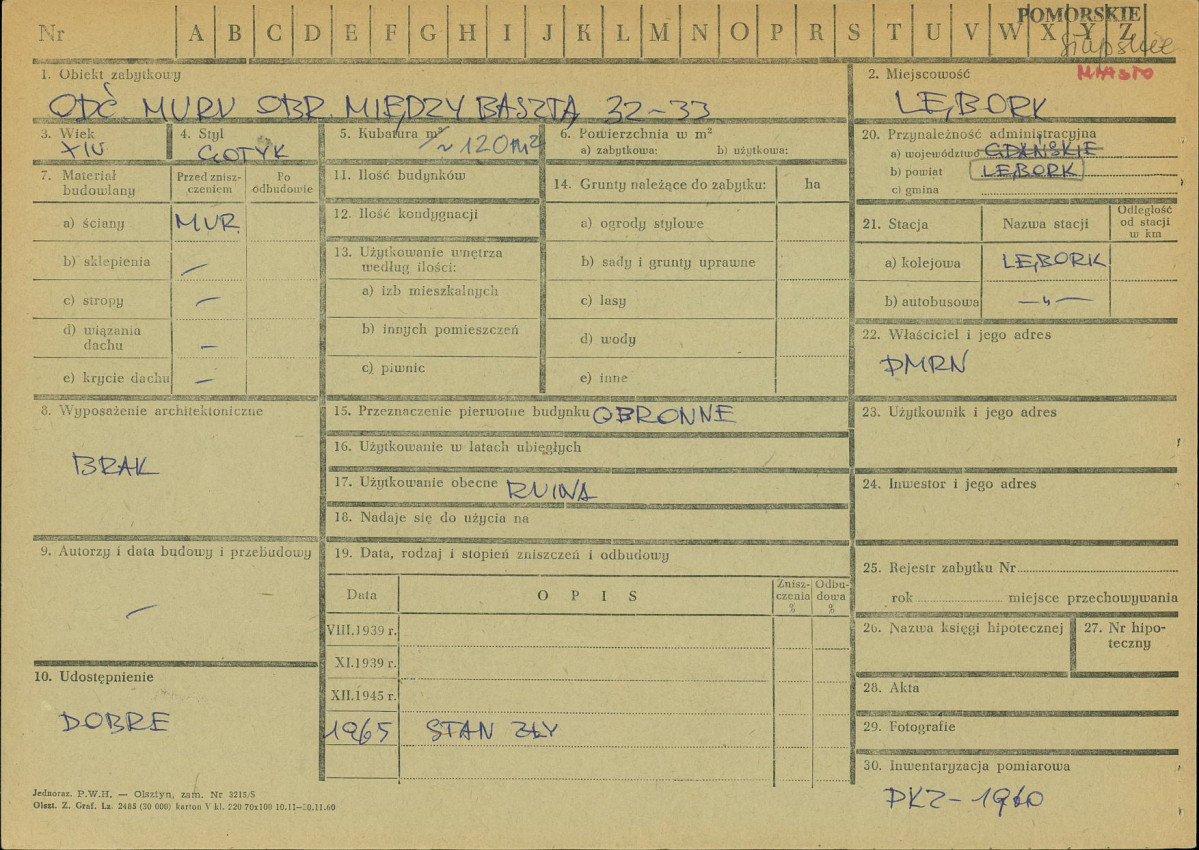 Nr A B C D E F G H I J K L M N O P R S T U V W X Y Z
POMORSKIE
słupskie
MIASTO
1. Obiekt zabytkowy
ODC. MURU OBR. MIĘDZY BASZTĄ 32-33
2. Miejscowość
LĘBORK
3. Wiek
XIV
4. Styl
GOTYK
5. Kubatura m³
~ 120 m²
6. Powierzchnia w m²
a) zabytkowa: b) użytkowa:
7. Materiał budowlany
Przed zniszczeniem
Po odbudowie
a) ściany MUR.
b) sklepienia —
c) stropy —
d) wiązania dachu —
e) krycie dachu —
8. Wyposażenie architektoniczne
BRAK
9. Autorzy i data budowy i przebudowy
—
10. Udostępnienie
DOBRE
11. Ilość budynków
12. Ilość kondygnacji
13. Użytkowanie wnętrza według ilości:
a) izb mieszkalnych
b) innych pomieszczeń
c) piwnic
14. Grunty należące do zabytku: ha
a) ogrody stylowe
b) sady i grunty uprawne
c) lasy
d) wody
e) inne
15. Przeznaczenie pierwotne budynku OBRONNE
16. Użytkowanie w latach ubiegłych
17. Użytkowanie obecne RUINA
18. Nadaje się do użycia na
19. Data, rodzaj i stopień zniszczeń i odbudowy
Data OPIS Zniszczenia % Odbudowa %
VIII.1939 r.
XI.1939 r.
XII.1945 r.
1965 STAN ZŁY
20. Przynależność administracyjna
a) województwo GDAŃSKIE
b) powiat LĘBORK
c) gmina
21. Stacja Nazwa stacji Odległość od stacji w km
a) kolejowa LĘBORK
b) autobusowa —〃—
22. Właściciel i jego adres
PMRN
23. Użytkownik i jego adres
24. Inwestor i jego adres
25. Rejestr zabytku Nr
rok miejsce przechowywania
26. Nazwa księgi hipotecznej
27. Nr hipoteczny
28. Akta
29. Fotografie
30. Inwentaryzacja pomiarowa
PKZ - 1960
Jednoraz. P.W.H. — Olsztyn, zam. Nr 3215/S
Olszt. Z. Graf. Lz. 2485 (30 000) karton V kl. 220 70x100 10.11-30.11.60